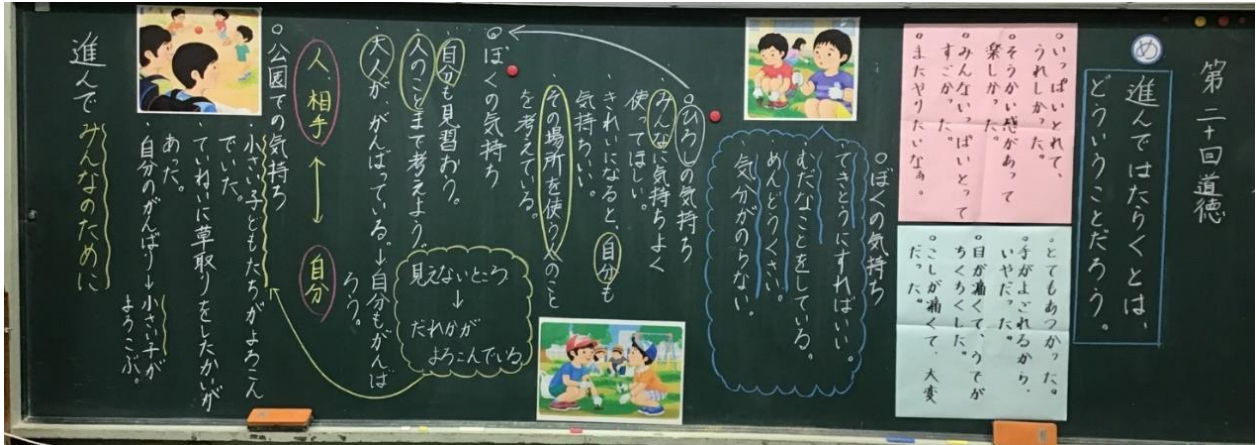 第二十回道徳
め
進んではたらくとは、
どういうことだろう。
○いっぱいとれて、
うれしかった。
○そうかい感があって
楽しかった。
○みんないっぱいとって
すごかった。
○またやりたいなぁ。
○とてもあつかった。
○手がよごれるから、
いやだった。
○目が痛くて、うでが
ちくちくした。
○こしが痛くて、大変
だった。
○ぼくの気持ち
てきとうにすればいい。
むだなことをしている。
めんどうくさい。
気分がのらない。
○ひろしの気持ち
・みんなに気持ちよく
使ってほしい。
・きれいになると、自分も
気持ちいい。
・その場所を使う人のこと
を考えている。
◎ぼくの気持ち
・自分も見習おう。
・人のことまで考えよう。
・大人が、がんばっている。→自分もがんば
ろう。
見えないところ
↓
だれかが
よろこんでいる
人、相手
↔
自分
○公園での気持ち
・小さい子どもたちがよろこん
でいた。
・ていねいに草取りをしたかいが
あった。
・自分のがんばり→小さい子が
よろこぶ。
進んでみんなのために